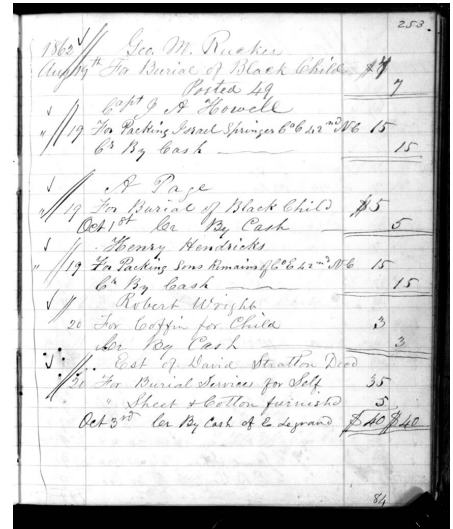 253.
1862 Geo. M. Rucker
Aug 19th For Burial of Black Child $7
Posted 49 7
Capt J A Howell
" 19 For Packing Israel Springer Co C 42nd N C 15
Cr By Cash 15
A Page
" 19 For Burial of Black Child $5
Oct 1st Cr By Cash 5
Henry Hendricks
" 19 For Packing Sons Remains of Co C 42nd N C 15
Cr By Cash 15
Robert Wright
20 For Coffin for Child 3
Cr By Cash 3
Est of David Stratton Decd
20 For Burial Services for Self 35
" Sheet & Cotton furnished 5
Oct 3rd Cr By Cash of E Legrand $40 $40
84